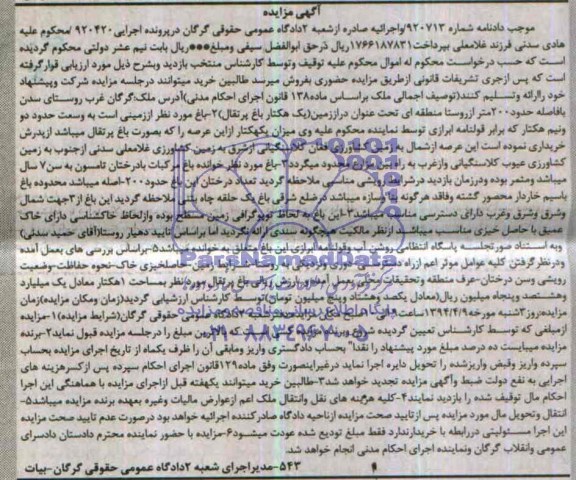 آگهی مزایده
موجب دادنامه شماره ۹۲۰۷۱۳/واجرائیه صادره ازشعبه ۲دادگاه عمومی حقوقی گرگان درپرونده اجرایی ۹۲۰۴۲۰ /محکوم علیه
هادی سدنی فرزند غلامعلی بپرداخت ۱۷۶۶۱۸۷۸۳۱ریال درحق ابوالفضل سیفی ومبلغ ***ریال بابت نیم عشر دولتی محکوم گردیده
است که حسب درخواست محکوم له اموال محکوم علیه توقیف وتوسط کارشناس منتخب بازدید وبشرح ذیل مورد ارزیابی قرارگرفته
است که پس ازجری تشریفات قانونی ازطریق مزایده حضوری بفروش میرسد طالبین خرید میتوانند درجلسه مزایده شرکت وپیشنهاد
خود راارائه وتسلیم کنند(توصیف اجمالی ملک براساس ماده۱۳۸ قانون اجرای احکام مدنی)آدرس ملک:گرگان غرب روستای سدن
بافاصله حدود۲۰۰متر ازروستا منطقه ای تحت عنوان درازمین(یک هکتار باغ پرتقال)۲-باغ مورد نظر اززمینی است به وسعت حدود دو
ونیم هکتار که برابر قولنامه ابرازی توسط نماینده محکوم علیه وی میزان یکهکتار ازاین عرصه را که بصورت باغ پرتقال میباشد ازپدرش
خریداری نموده است این عرصه ازشمال به زمین کشاورزی دهقان کلاسنگیانی ازشرق به زمین کشاورزی غلامعلی سدنی ازجنوب به زمین
کشاورزی عیوب کلاسنگیانی وازغرب به محدود میگردد۳-باغ مورد نظر خوانده باغ مرکبات بادرختان تامسون به سن۷ سال
میباشد ومثمر بوده ودرزمان بازدید درشرایط رویشی مناسبی ملاحظه گردید تعداد درختان این باغ حدود۲۰۰-اصله میباشد محدوده باغ
باسیم خاردار محصور گشته وفاقد هرگونه بنا وسازه میباشد درضلع شرقی باغ یک حلقه چاه ملاحظه گردید این باغ از۳جهت شمال
وشرق وشرق وغرب دارای دسترسی مناسب میباشد۴-این باغ به لحاظ توپوگرافی زمین مسطح بوده وازلحاظ خاکشناسی دارای خاک
عمیق با حاصل خیزی مناسب میباشد۵-ازنظر مالکیت هیچگونه سندی ارائه نگردید اما براساس تایید دهیار روستا(آقای حمید سدنی)
وبه استناد صورتجلسه پاسگاه انتظامی روشن آب وقولنامه ابرازی این باغ متعلق به خوانده میباشد۵-براساس بررسی های بعمل آمده
ودرنظرگرفتن کلیه عوامل موثر اعم ازراه دسترسی دوری ونزدیکی به روستا-شرایط زمین-حاصلخیزی خاک-نحوه حفاظت-وضعیت
رویشی وسن درختان-عرف منطقه وتحقیقات بعمل آمده ارزش ریالی باغ پرتقال موردنظر بمساحت ۱هکتار معادل یک میلیارد
وهشتصد وپنجاه میلیون ریال(معادل یکصد وهشتاد وپنج میلیون تومان)توسط کارشناس ارزشیابی گردید(زمان ومکان مزایده)زمان
مزایده:روز ۳شنبه مورخه۱۳۹۴/۴/۹ساعت عمومی حقوقی گرگان(شرایط مزایده)۱-مزایده
ازمبلغی که توسط کارشناس تعیین گردیده شروع که بالاترین مبلغ را درجلسه مزایده قبول نماید۲-برنده
مزایده میبایست ده درصد مبلغ مورد پیشنهاد را نقدا" بحساب دادگستری واریز ومابقی آن را ظرف یکماه از تاریخ اجرای مزایده بحساب
سپرده واریز وفیض واریزشده را تحویل دایره اجرا نماید درغیراینصورت وفق ماده۱۲۹قانون اجرای احکام سپرده پس ازکسرهزینه های
اجرایی به نفع دولت ضبط وآگهی مزایده تجدید خواهد شد۳-طالبین خرید میتوانند یکهفته قبل ازاجرای مزایده با هماهنگی این اجرا
احکام مال توقیف شده را بازدید نمایند۴-کلیه هزینه های نقل وانتقال ملک اعم ازعوارض مالیات وغیره بعهده برنده مزایده میباشد۵-
انتقال وتحویل مال مورد مزایده پس ازتایید صحت مزایده ازناحیه دادگاه صادرکننده اجرائیه خواهد بود درصورت عدم تایید صحت مزایده
این اجرا مسئولیتی دررابطه با خریدارندارد فقط مبلغ تودیع شده عودت میشود۶-مزایده با حضور نماینده محترم دادستان دادسرای
عمومی وانقلاب گرگان ونماینده اجرای احکام مدنی انجام خواهد شد.
۵۴۳-مدیراجرای شعبه ۲دادگاه عمومی حقوقی گرگان-بیات
ParsNamadData
۰۲۱-۸۸۳۴۹۶۷۰-۵